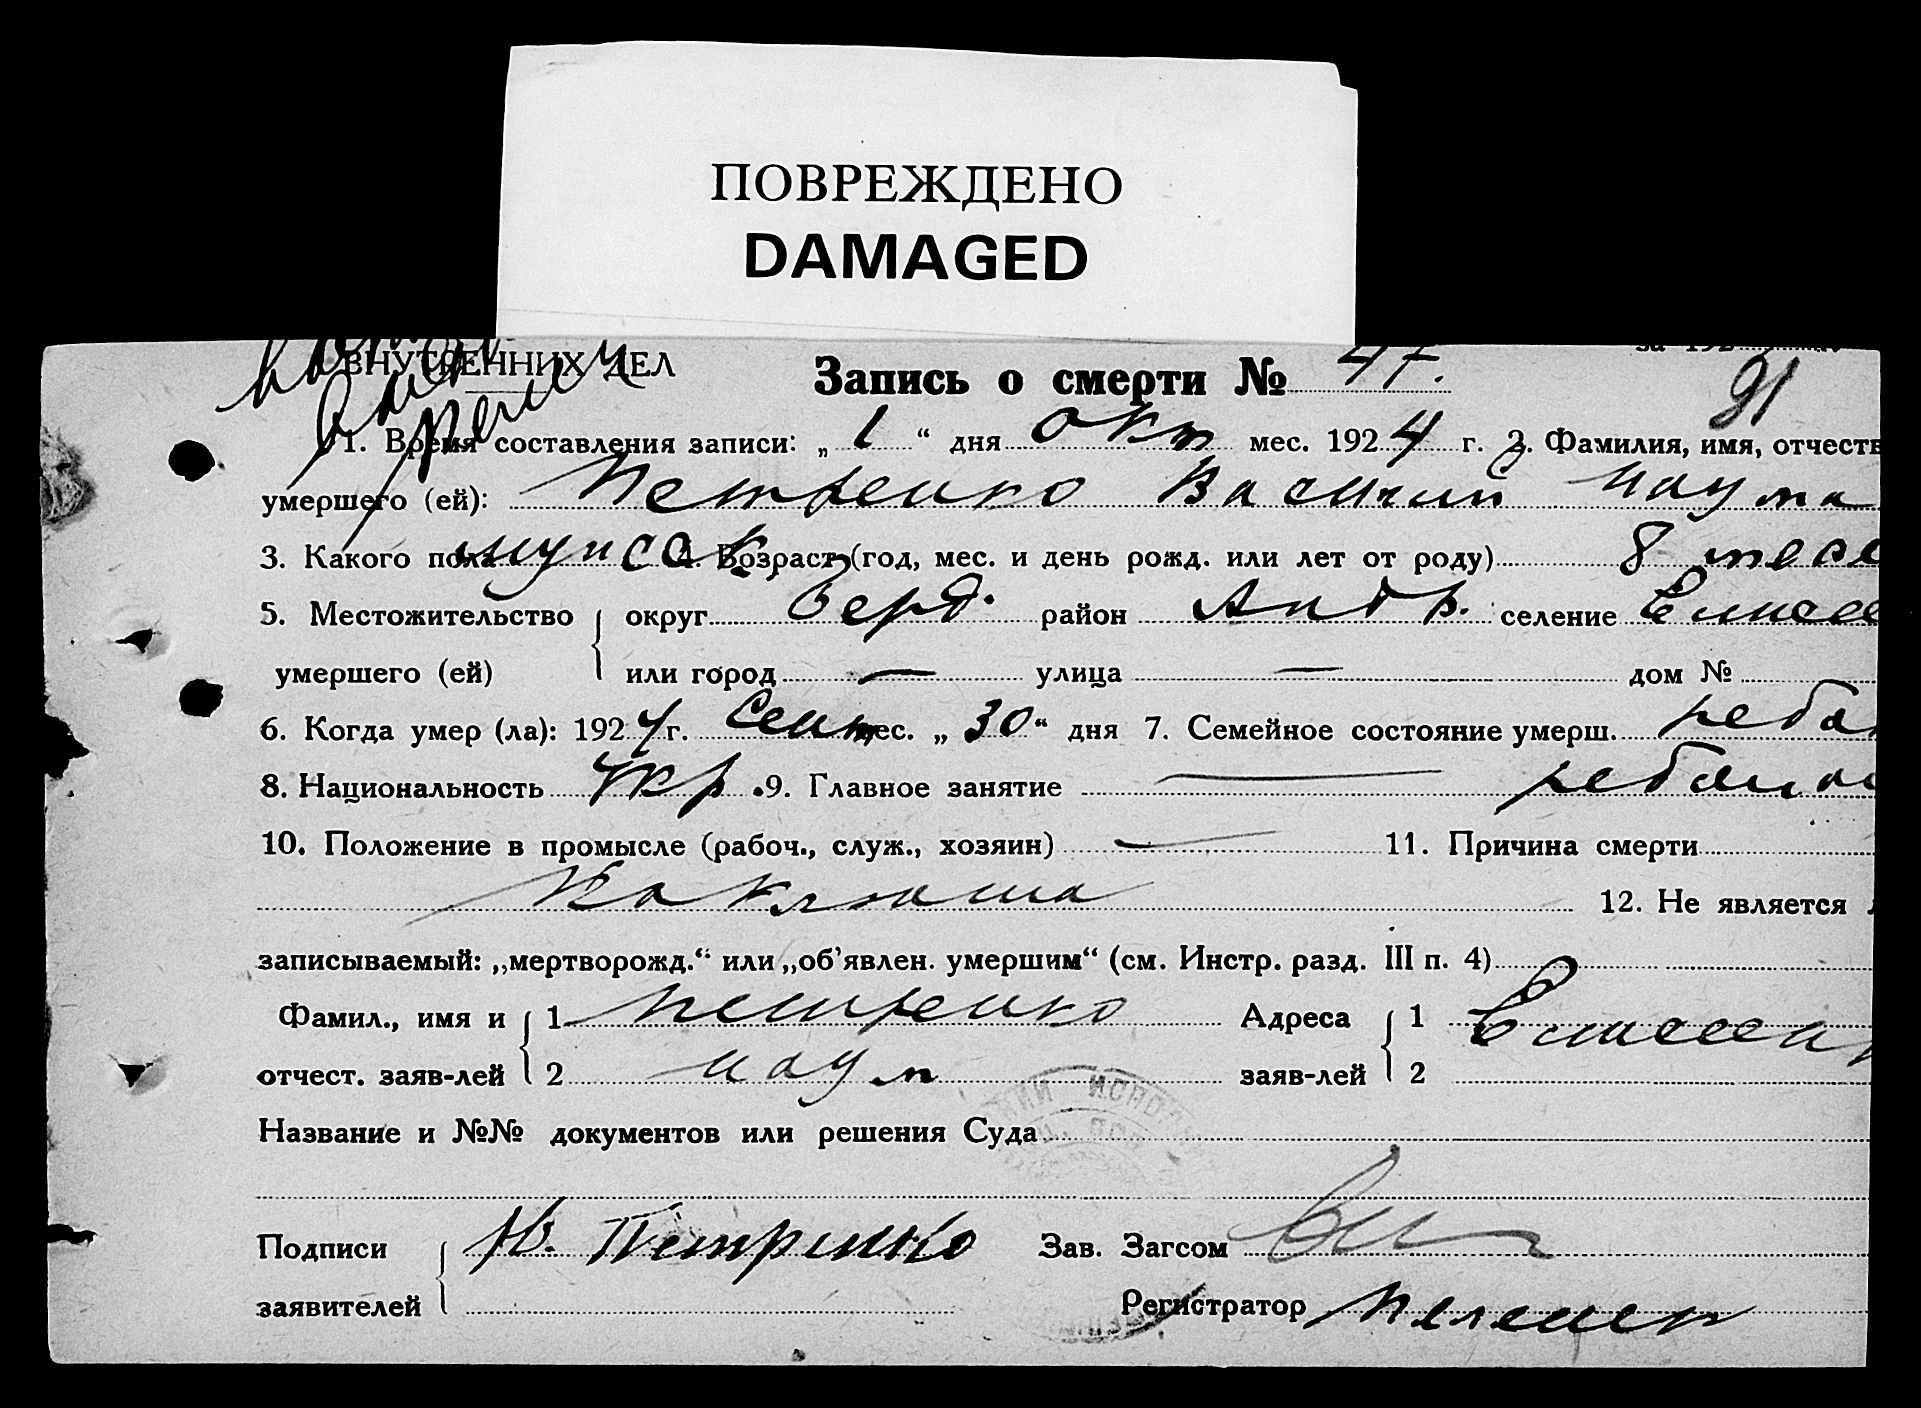 ПОВРЕЖДЕНО
DAMAGED
ВНУТРЕННИХ ДЕЛ
Запись о смерти № 47.
91
1. Время составления записи: „ 1 “ дня окт мес. 1924 г. 2. Фамилия, имя, отчеств
умершего (ей): Петренко Василий Наума
3. Какого пола мужск. 4. Возраст (год, мес. и день рожд. или лет от роду) 8 месе
5. Местожительство округ Берд. район Андр. селение Елисее
умершего (ей) или город — улица — дом №
6. Когда умер (ла): 1924 г. Сент мес. „ 30 “ дня 7. Семейное состояние умерш. ребе
8. Национальность Укр. 9. Главное занятие — ребенок
10. Положение в промысле (рабоч., служ., хозяин) — 11. Причина смерти
Коклюша 12. Не является
записываемый: „мертворожд.“ или „об’явлен. умершим“ (см. Инстр. разд. III п. 4)
Фамил., имя и 1 Петренко Адреса 1
отчест. заяв-лей 2 Наум заяв-лей 2
Название и №№ документов или решения Суда
Подписи Н. Петренко Зав. Загсом
заявителей Регистратор